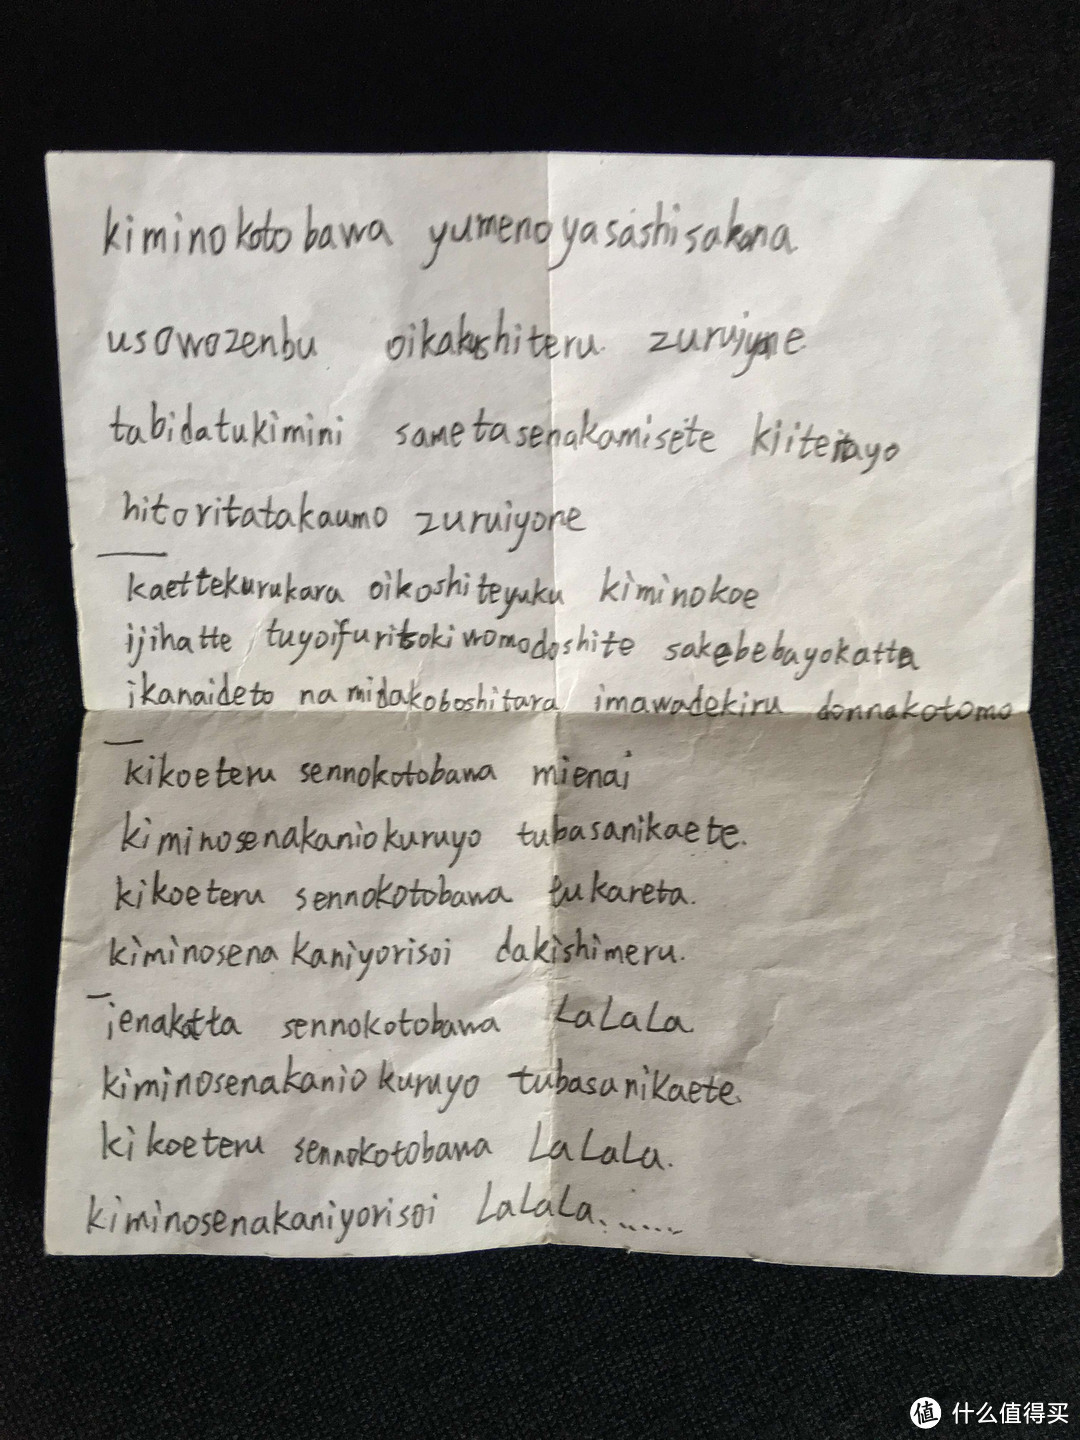 kiminokotobawa yumenoyasashisakana
usowozenbu oikakushiteru zuruiyone
tabidatukimini sametasenakamisete kiiteitayo
hitoritatakaumo zuruiyone
kaettekurukara oikoshiteyuku kiminokoe
ijihatte tuyoifuritokiwomodoshite sakebebayokatta
ikanaideto namidakoboshitara imawadekiru donnakotomo
kikoeteru sennokotobawa mienai
kiminosenakaniokuruyo tubasanikaete.
kikoeteru sennokotobawa tukareta.
kiminosenakaniyorisoi dakishimeru.
ienakatta sennokotobawa LaLaLa
kiminosenakaniokuruyo tubasanikaete.
kikoeteru sennokotobawa LaLaLa.
kiminosenakaniyorisoi LaLaLa......
值 什么值得买